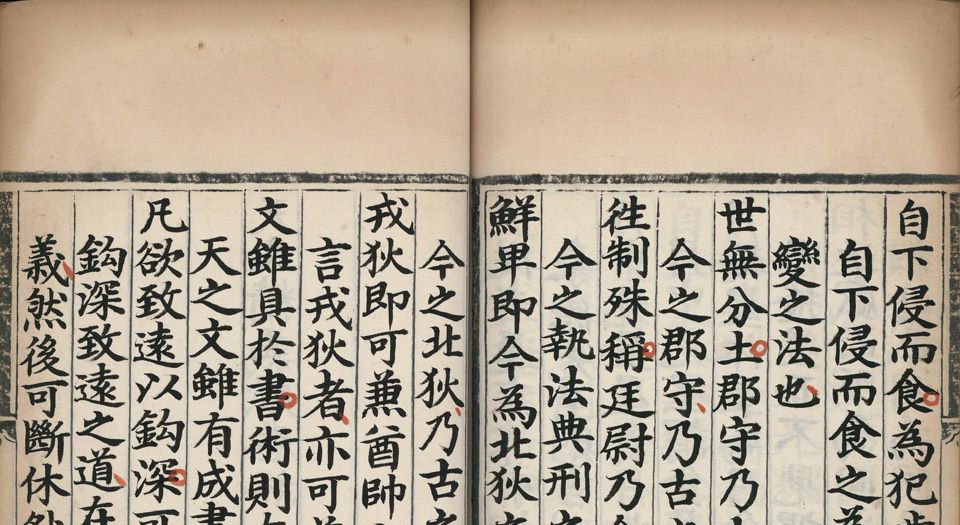 自下侵而食為犯
自下侵而食之
變之法也
世無分土郡守乃
今之郡守乃古
徃制殊稱廷尉乃
今之執法典刑
鮮卑即今為北狄
今之北狄乃古
戎狄即可兼酋帥
言戎狄者亦可
文雖具於書術則
天之文雖有成
凡欲致遠以鈎深
鈎深致遠之道在
義然後可斷休